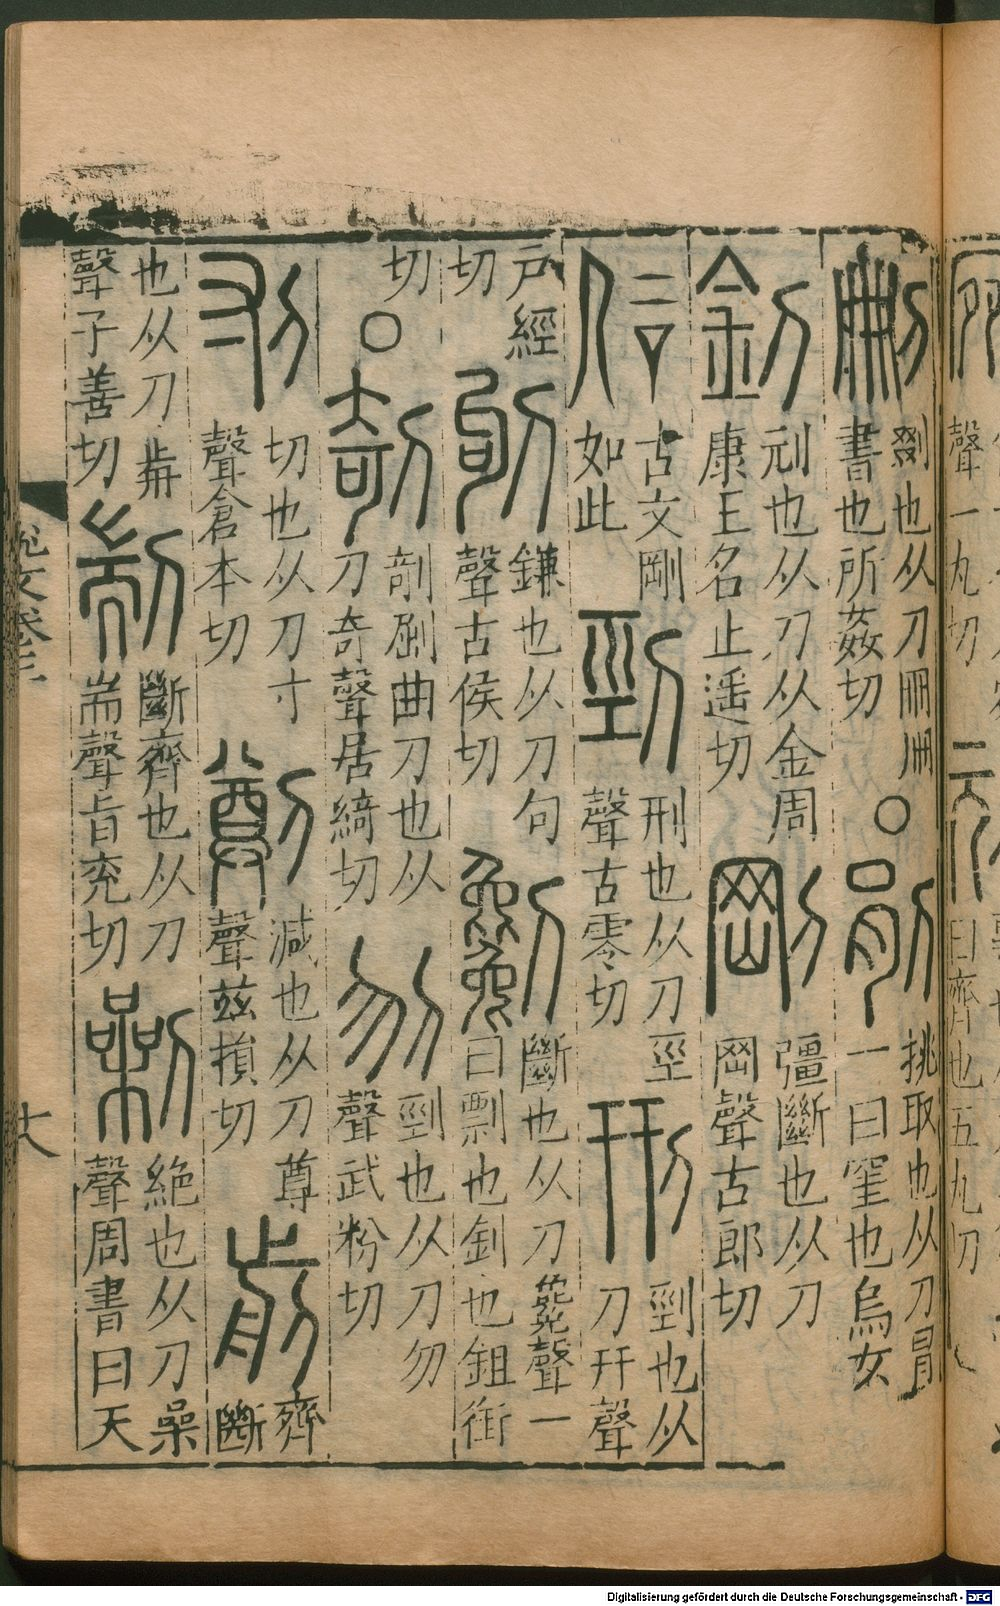 聲一丸切
曰齊也五丸切
刪
剟也从刀冊冊
書也所姦切
○
剈
挑取也从刀肙
一曰窐也烏玄
釗
刓也从刀从金周
康王名止遥切
剛
彊斷也从刀
岡聲古郎切
古文剛
如此
剄
刑也从刀巠
聲古零切
㓝
剄也从
刀幵聲
戶經
切
刏
鎌也从刀句
聲古侯切
劖
斷也从刀毚聲一
曰剽也釗也鉏銜
切
○
剞
剞㓸曲刀也从
刀奇聲居綺切
刎
剄也从刀勿
聲武粉切
刌
切也从刀寸
聲倉本切
剸
減也从刀尊
聲茲損切
前
齊
斷
也从刀歬
聲子善切
剬
斷齊也从刀
耑聲旨兖切
劋
絶也从刀喿
聲周書曰天
說文卷三
Digitalisierung gefördert durch die Deutsche Forschungsgemeinschaft - DFG